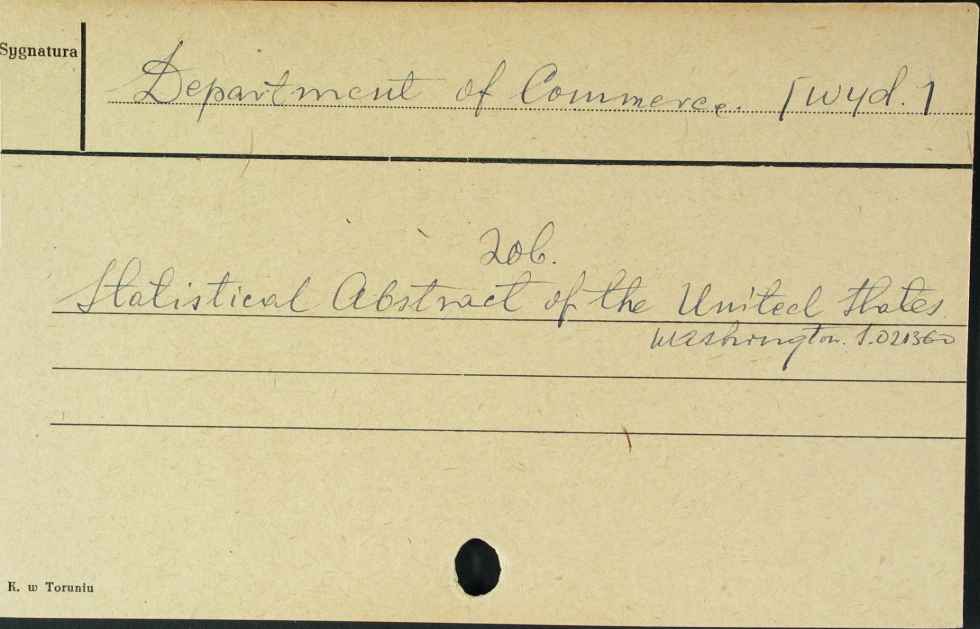 Sygnatura
Department of Commerce. [wyd.]
Zob.
Statistical Abstract of the United States.
Washington. S.021360
K. w Toruniu